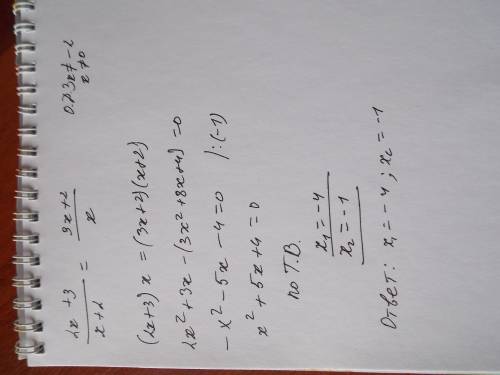 (2x+3)/(x+2) = (3x+2)/x   О.Д.З x≠-2
x≠0
(2x+3)x = (3x+2)(x+2)
2x²+3x-(3x²+8x+4)=0
-x²-5x-4=0 |:(-1)
x²+5x+4=0
по Т.В.
x₁=-4
x₂=-1
Ответ: x₁=-4; x₂=-1